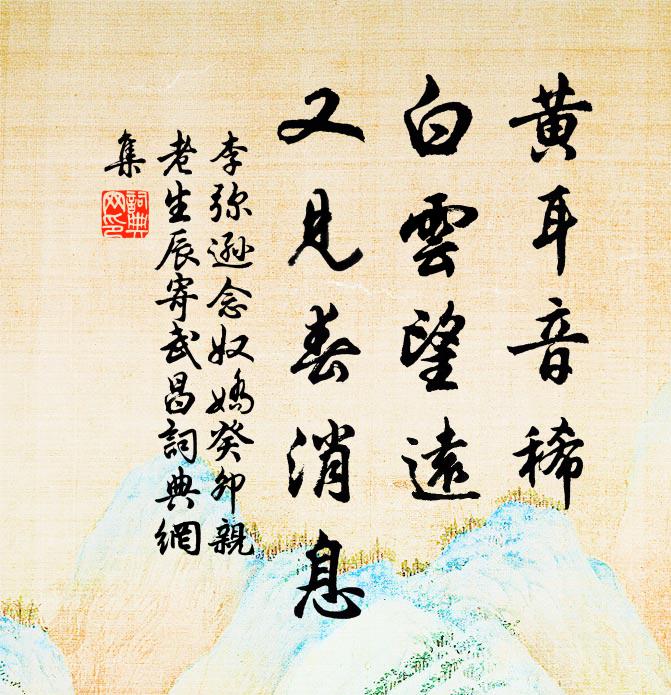 黄耳音稀
白雲望遠
又見春消息
李弥遜念奴嬌癸卯親
老生辰寄武昌詞典網
集
詞典
网印